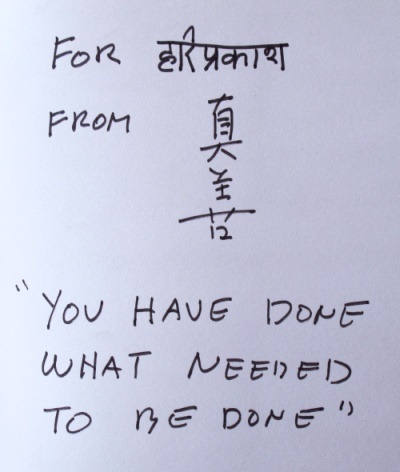 FOR हरिप्रकाश
FROM 真
"YOU HAVE DONE
WHAT NEEDED
TO BE DONE"